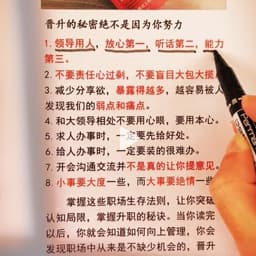 晋升的秘密绝不是因为你努力
1. 领导用人，放心第一，听话第二，能力
第三。
2. 不要责任心过剩，不要盲目大包大揽
3. 减少分享欲，暴露得越多，越容易被人
发现我们的弱点和痛点。
4. 和大领导相处不要用心眼，要用本心。
5. 求人办事时，一定要先给好处。
6. 给人办事时，一定要装的很难办。
7. 开会沟通交流并不是真的让你提意见。
8. 小事要大度一些，而大事要绝情一
掌握这些职场生存法则，让你突破
认知局限，掌握升职的秘诀。当你读完
以后，你就会知道如何向上管理，你会
发现职场中从来是不缺少机会的，晋升